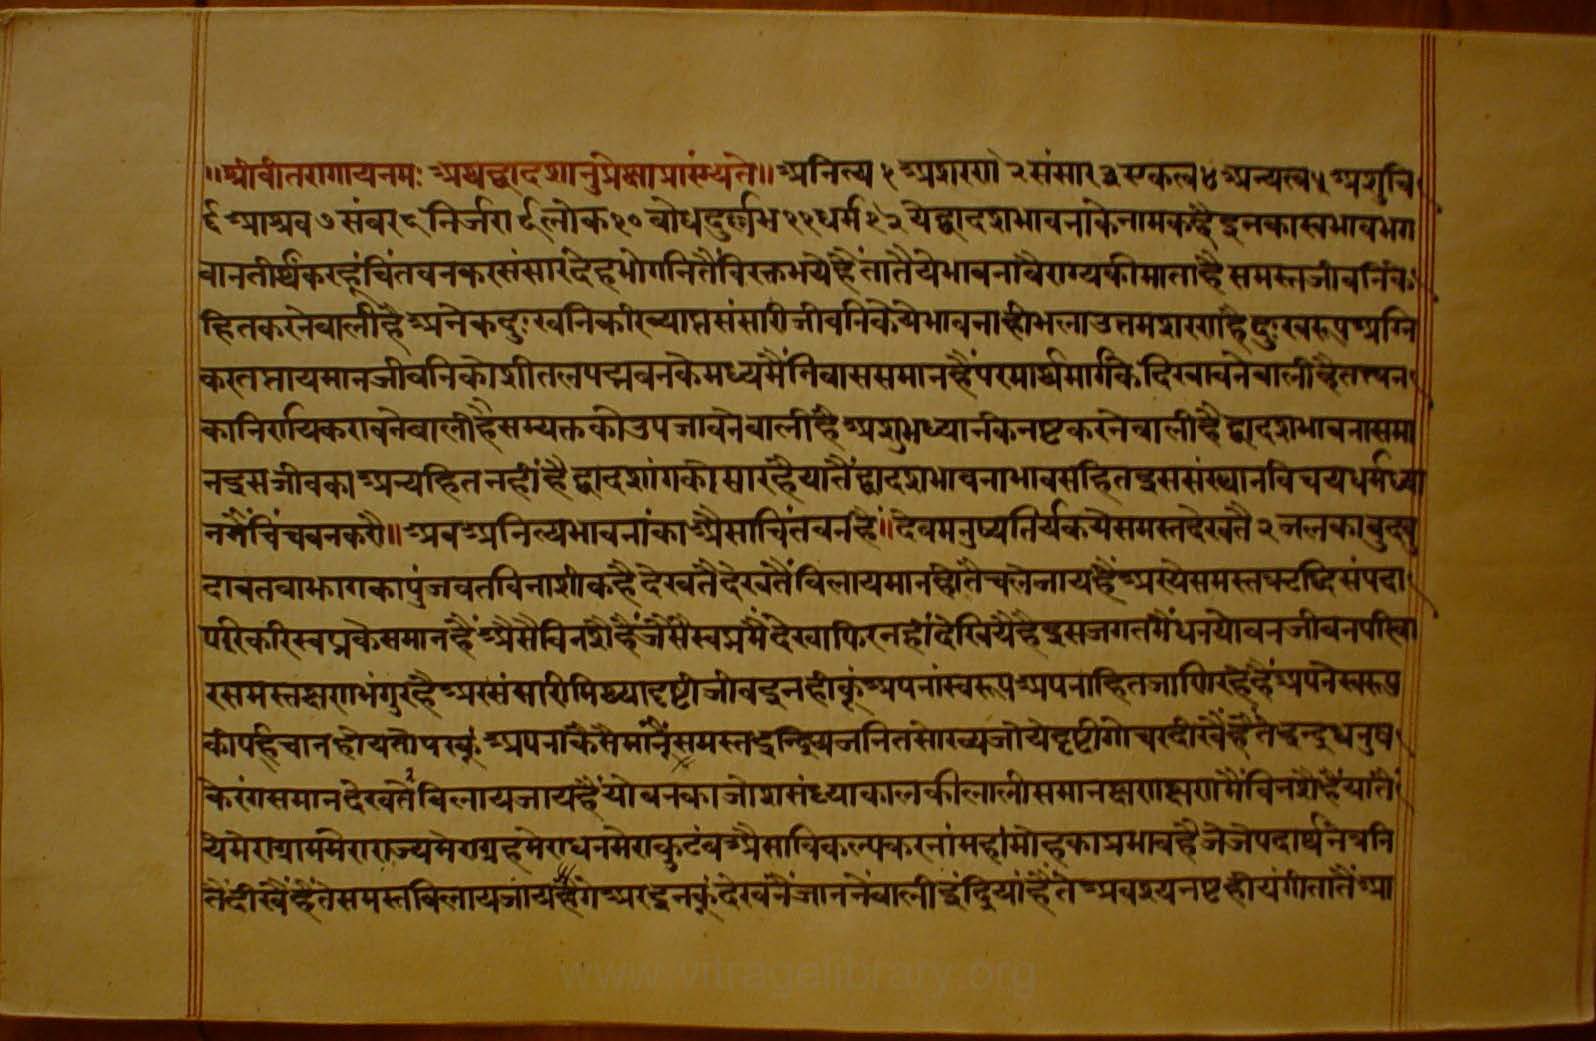 ॥श्रीवीतरागायनमः अथद्वादशानुप्रेक्षाप्रारंभ्यते॥ अनित्य १ अशरण २ संसार ३ एकत्व ४ अन्यत्व ५ अशुचि
६ आश्रव ७ संवर ८ निर्जरा ९ लोक १० बोधदुर्लभ ११ धर्म १२ येद्वादशभावनाकेनामकहैइनकास्वभावभग
वानतीर्थंकरहूंचिंतवनकरसंसारदेहभोगनितैंविरक्तभयेहैंतातैयेभावनावैराग्यकीमाताहैसमस्तजीवनिके
हितकरनेवालीहैअनेकदुःखनिकरिव्याप्तसंसारीजीवनिकेयेभावनाहीभलाउत्तमशरणहैदुःखरूपअग्नि
करतप्तायमानजीवनिकोशीतलपद्मवनकेमध्यमैंनिवाससमानहैंपरमार्थमार्गकेदिखावनेवालीहैतत्त्वन
कानिर्णयकरावनेवालीहैसम्यक्तकोउपजावनेवालीहैअशुभध्यानकेनष्टकरनेवालीहैद्वादशभावनासमा
नइसजीवकाअन्यहितनहींहैद्वादशांगकोसारहैयातैंद्वादशभावनाभावसहितइससंस्थानविचयधर्मध्या
नमैंचिंचवनकरौ॥ अबअनित्यभावनांकाअैसाचिंतवनहै॥ देवमनुष्यतिर्यंकयेसमस्तदेखतै २ जलकाबुदबु
दावतवाझागकापुंजवतविनाशीकहैदेखतैदेखतैंविलायमानहोतैचलेजायहैंअरयेसमस्तऋद्धिसंपदा
परिकरिस्वप्नकेसमानहैंअैसैंविनशैहैंजैसैंस्वप्नमैंदेखाफिरनहींदेखियैहैइसजगतमैंधनयोवनजीवनपरिवा
रसमस्तक्षणभंगुरहैअरसंसारीमिथ्यादृष्टीजीवइनहीकूंअपनांस्वरूपअपनाहितजाणिरहेहैंअपनेस्वरूप
कीपहिचानहोयतोपरकूंअपनाकैसैमांनैंसमस्तइन्द्रियजनितसोख्यजोयेदृष्टीगोचरदीखैंहैंतेइन्द्रधनुष
केरंगसमानदेखतै २ विलायजायहैंयोवनकाजोशसंध्याकालकीलालीसमानक्षणक्षणमैंविनशैहैंयातैं
येमेराग्राममेराराज्यमेराग्रहमेराधनमेराकुटंबअैसाविकल्पकरनांमहांमोहकाप्रभावहैजेजेपदार्थनेत्रनि
तैंदीखैंहैंतेसमस्तविलायजायहैंगेअरइनकूंदेखनैंजाननेंवालीइंद्रियांहैंतेअवश्यनष्टहोयंगीतातैंआ
www.vitragelibrary.org